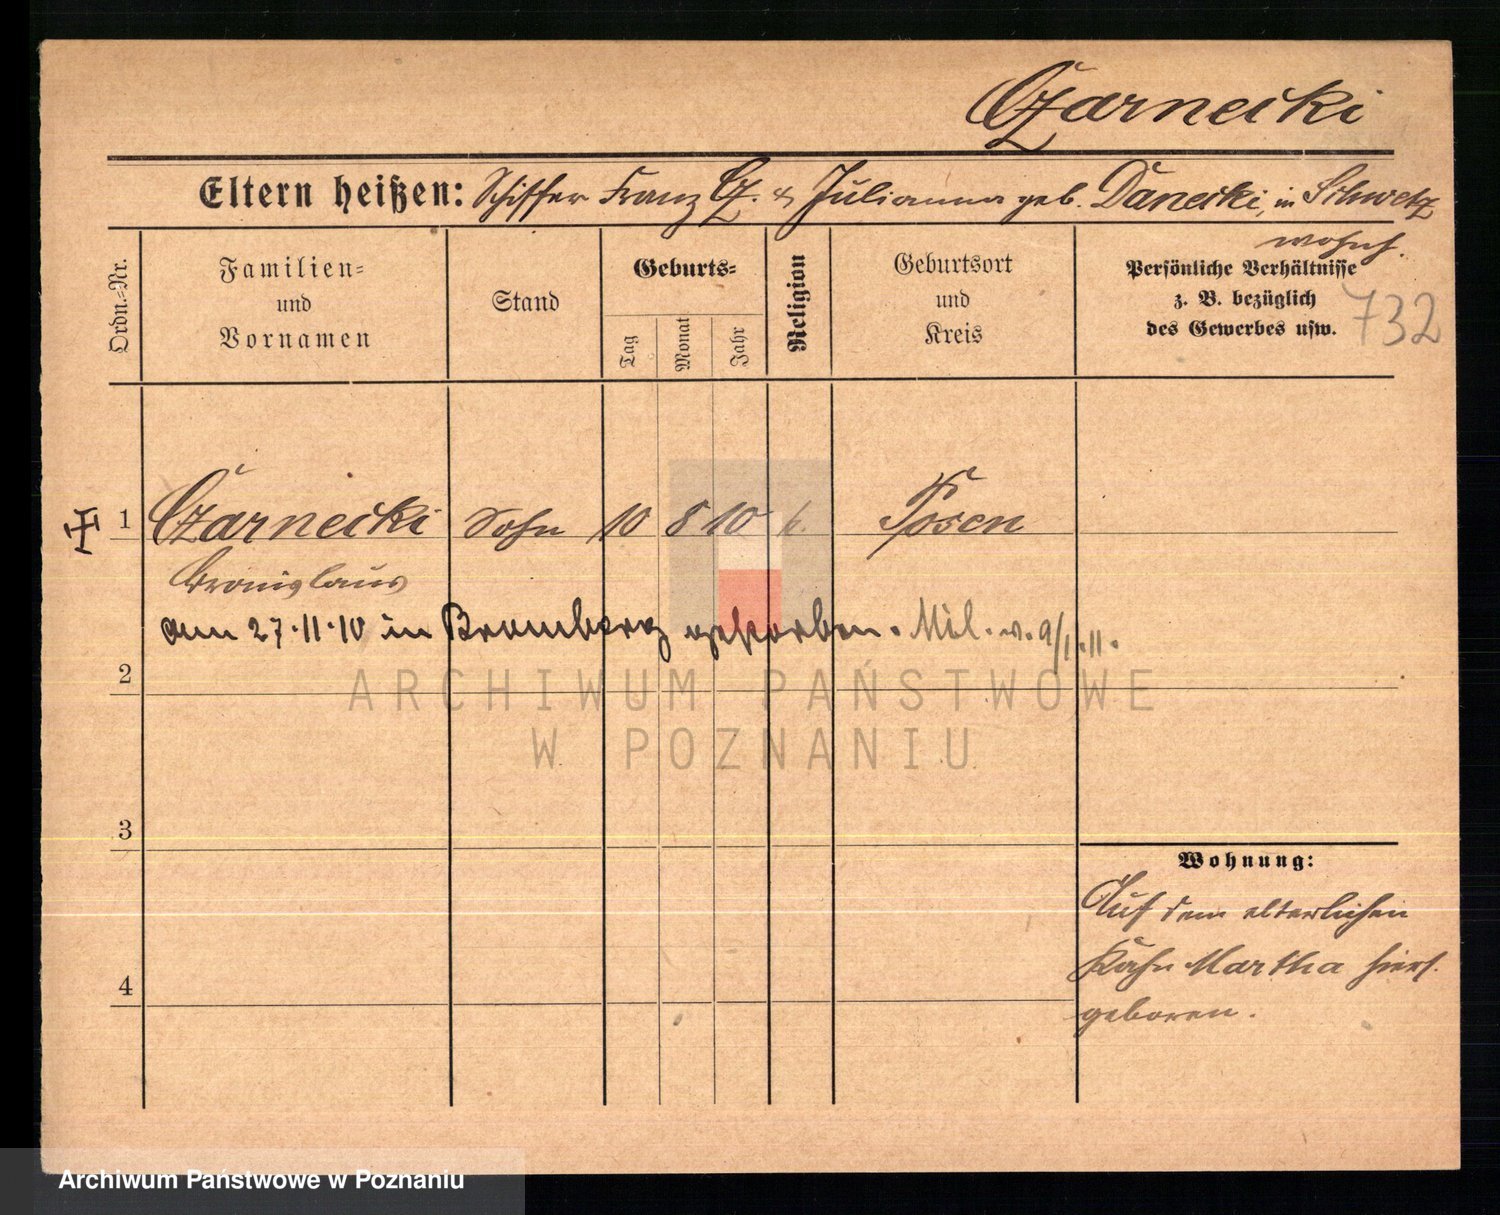 Czarnecki
Eltern heißen: Schiffer Franz Cz. & Julianna geb. Danecki, in Schwetz
wohnh.
Ordn.=Nr.
Familien=
und
Vornamen
Stand
Geburts=
Tag
Monat
Jahr
Religion
Geburtsort
und
Kreis
Persönliche Verhältnisse
z. B. bezüglich
des Gewerbes usw.
732
1 Czarnecki Sohn 10 8 10 k. Posen
Bronislaus
am 27.11.10 in Bromberg gestorben. Mil. v. 9/1.11.
2
3
4
Wohnung:
Auf dem elterlichen
Kahn Martha hiers.
geboren.
ARCHIWUM PAŃSTWOWE
W POZNANIU
Archiwum Państwowe w Poznaniu